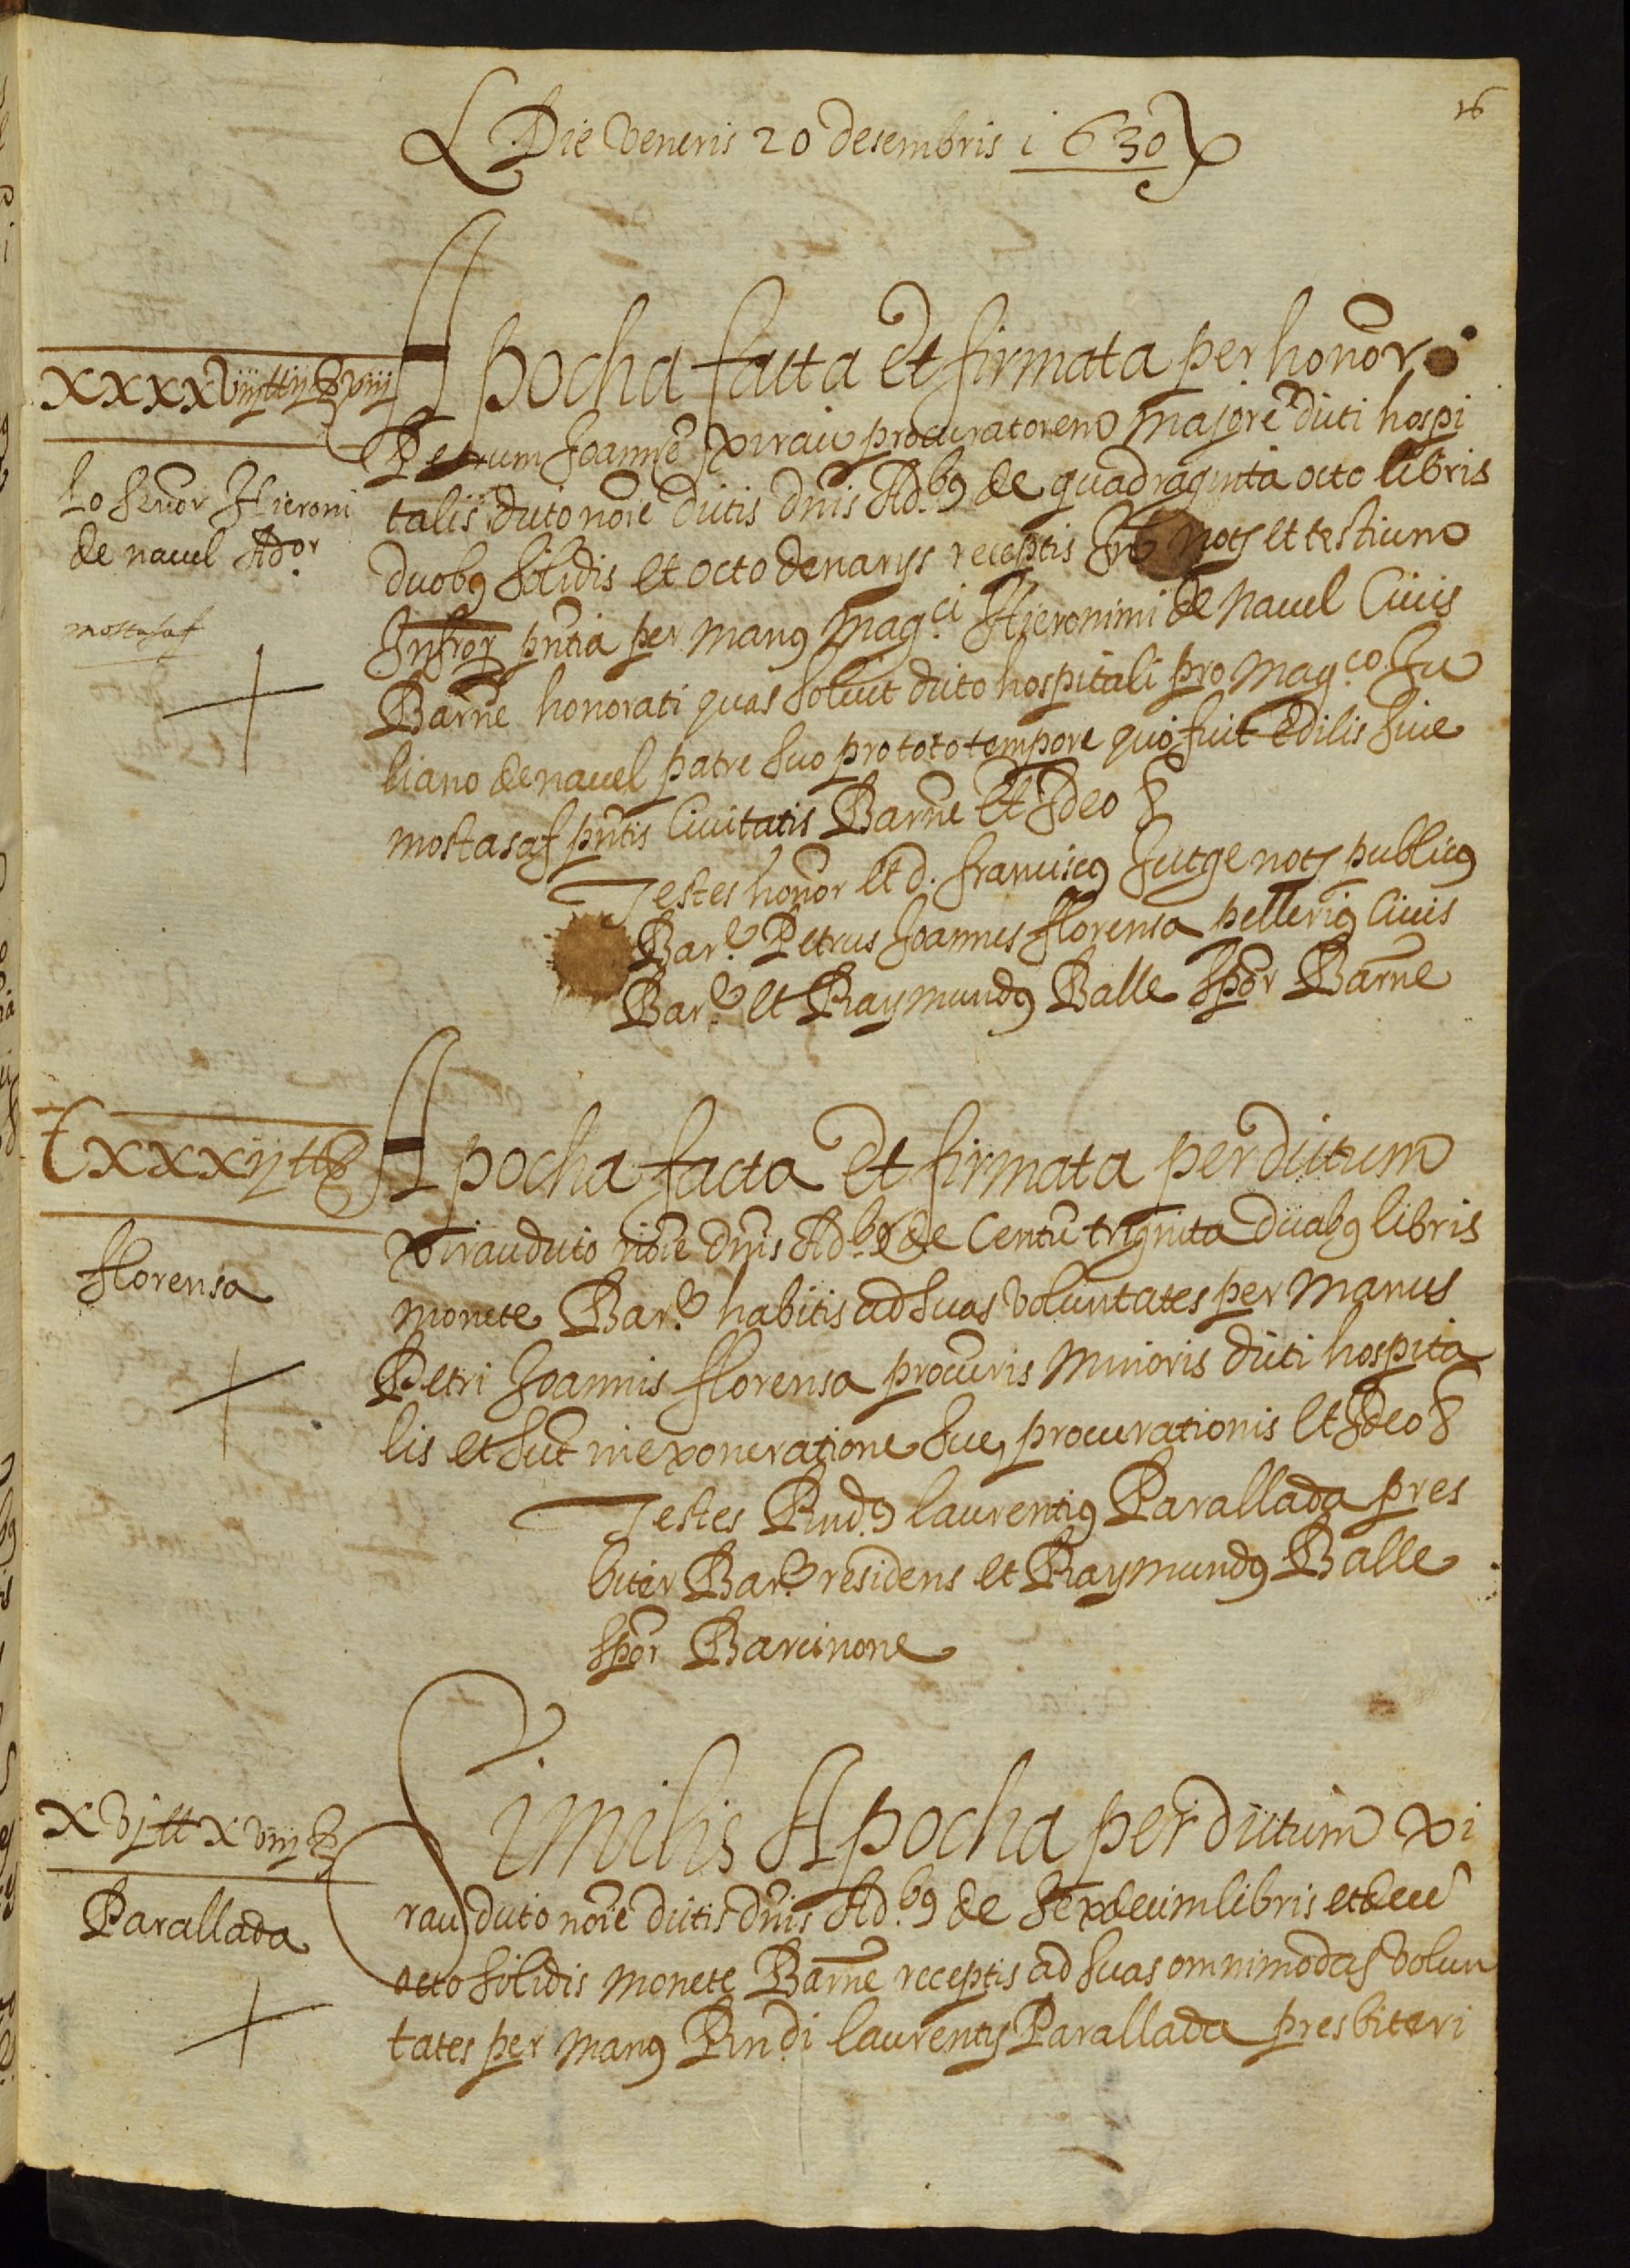 16
Die Veneris 20 desembris i630
xxxxviij tt ij ß viij
Lo Senor Hieroni
de navel Ad.or
mostasaf
Apocha facta et firmata per honor
Petrum Joanne Xirau procuratorem majore dicti hospi
talis dicto noie dictis dnis Ad.b9 de quadraginta octo libris
duob9 solidis et octo denarijs receptis In not et testium
Infror pntia per man9 mag.ci Hieronimi de navel Civis
Barne honorati quas solvit dicto hospitali pro mag.co Ju
liano de navel patre suo pro toto tempore quo fuit Edilis sive
mostasaf pntis Civitatis Barne Et Ideo &
Testes honor et d. francisc9 Jutge not public9
Bar.e Petrus Joannes florensa pelleri9 Civis
Bar.e et Raymund9 Balle Spor Barne
Cxxxij tt ß
florensa
Apocha facta et firmata per dictum
Xirau dicto noie dnis Ad.b9 de Centu triginta duab9 libris
monete Bar.e habitis ad suas voluntates per manus
Petri Joannis florensa procuris minoris dicti hospita
lis et sut in exoneratione sue procurationis Et Ideo &
Testes Rnd.9 laurenti9 Parallada pres
biter Bar.e residens et Raymund9 Balle
Spor Barcinone
xvj tt xviij ß
Parallada
Similis Apocha per dictum Xi
rau dicto noie dictis dnis Ad.b9 de Sexdecim libris et dece
octo solidis monete Barne receptis ad suas omnimodas volun
tates per man9 Rndi laurentij Parallada presbiteri